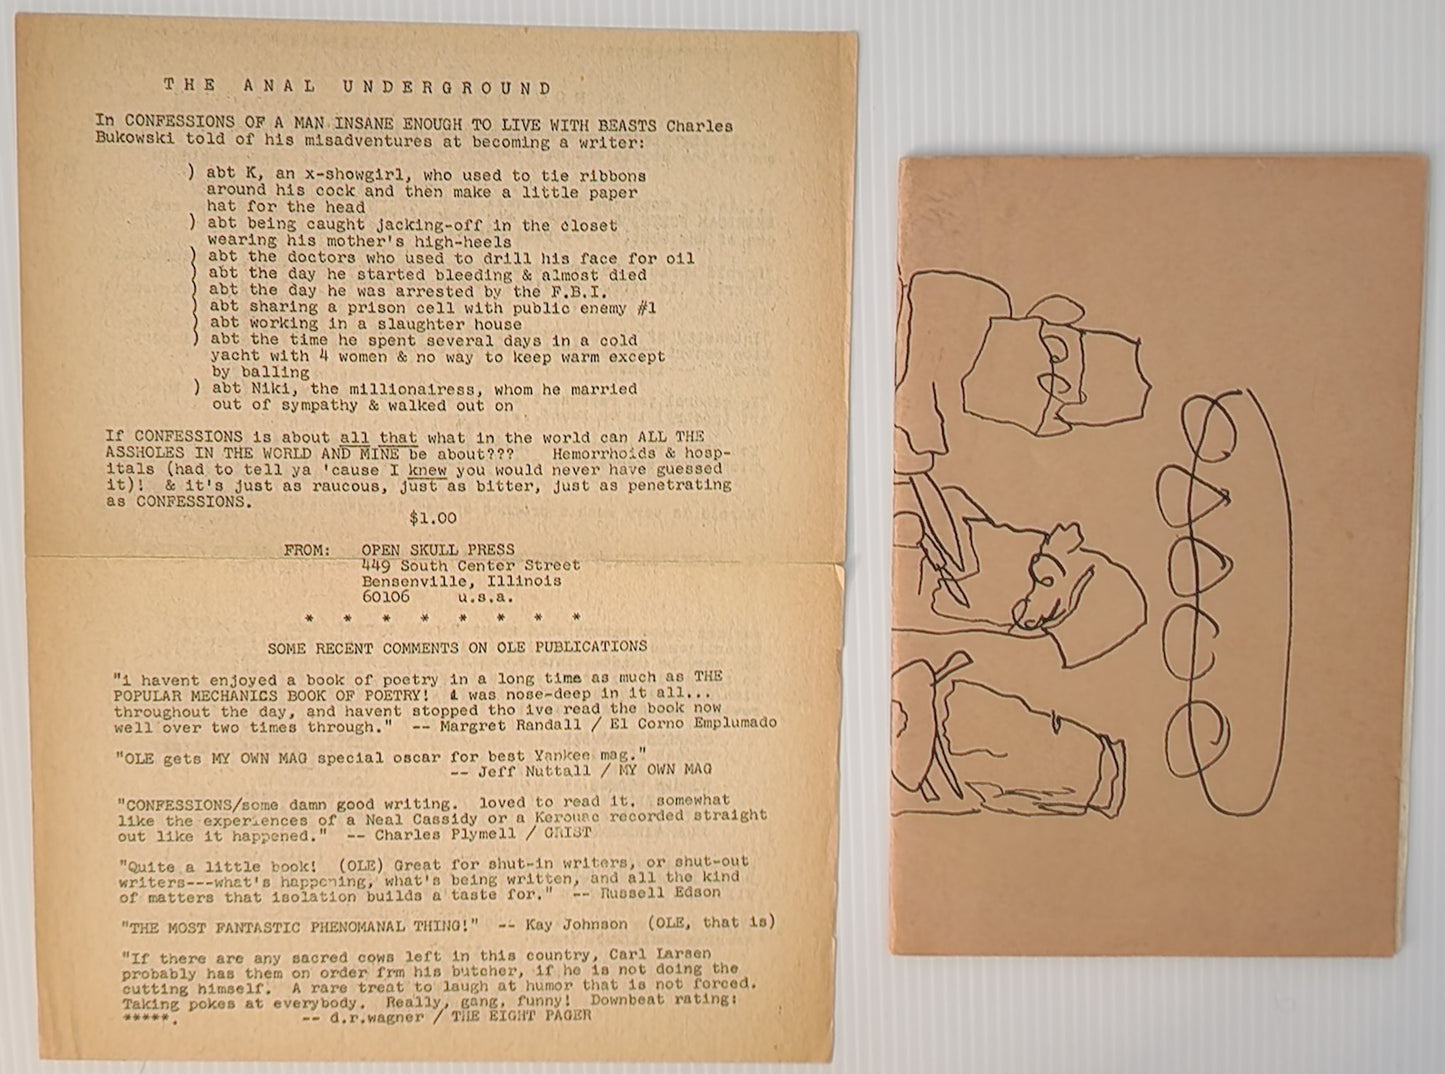 THE ANAL UNDERGROUND
In CONFESSIONS OF A MAN INSANE ENOUGH TO LIVE WITH BEASTS Charles
Bukowski told of his misadventures at becoming a writer:
) abt K, an x-showgirl, who used to tie ribbons
around his cock and then make a little paper
hat for the head
) abt being caught jacking-off in the closet
wearing his mother's high-heels
) abt the doctors who used to drill his face for oil
) abt the day he started bleeding & almost died
) abt the day he was arrested by the F.B.I.
) abt sharing a prison cell with public enemy #1
) abt working in a slaughter house
) abt the time he spent several days in a cold
yacht with 4 women & no way to keep warm except
by balling
) abt Niki, the millionairess, whom he married
out of sympathy & walked out on
If CONFESSIONS is about all that what in the world can ALL THE
ASSHOLES IN THE WORLD AND MINE be about??? Hemorrhoids & hosp-
itals (had to tell ya 'cause I knew you would never have guessed
it)! & it's just as raucous, just as bitter, just as penetrating
as CONFESSIONS.
$1.00
FROM: OPEN SKULL PRESS
449 South Center Street
Bensenville, Illinois
60106 u.s.a.
* * * * * * * *
SOME RECENT COMMENTS ON OLE PUBLICATIONS
"i havent enjoyed a book of poetry in a long time as much as THE
POPULAR MECHANICS BOOK OF POETRY! i was nose-deep in it all...
throughout the day, and havent stopped tho ive read the book now
well over two times through." -- Margret Randall / El Corno Emplumado
"OLE gets MY OWN MAG special oscar for best Yankee mag."
-- Jeff Nuttall / MY OWN MAG
"CONFESSIONS/some damn good writing. loved to read it. somewhat
like the experiences of a Neal Cassidy or a Kerouac recorded straight
out like it happened." -- Charles Plymell / GRIST
"Quite a little book! (OLE) Great for shut-in writers, or shut-out
writers---what's happening, what's being written, and all the kind
of matters that isolation builds a taste for." -- Russell Edson
"THE MOST FANTASTIC PHENOMANAL THING!" -- Kay Johnson (OLE, that is)
"If there are any sacred cows left in this country, Carl Larsen
probably has them on order frm his butcher, if he is not doing the
cutting himself. A rare treat to laugh at humor that is not forced.
Taking pokes at everybody. Really, gang, funny! Downbeat rating:
*****. -- d.r.wagner / THE EIGHT PAGER